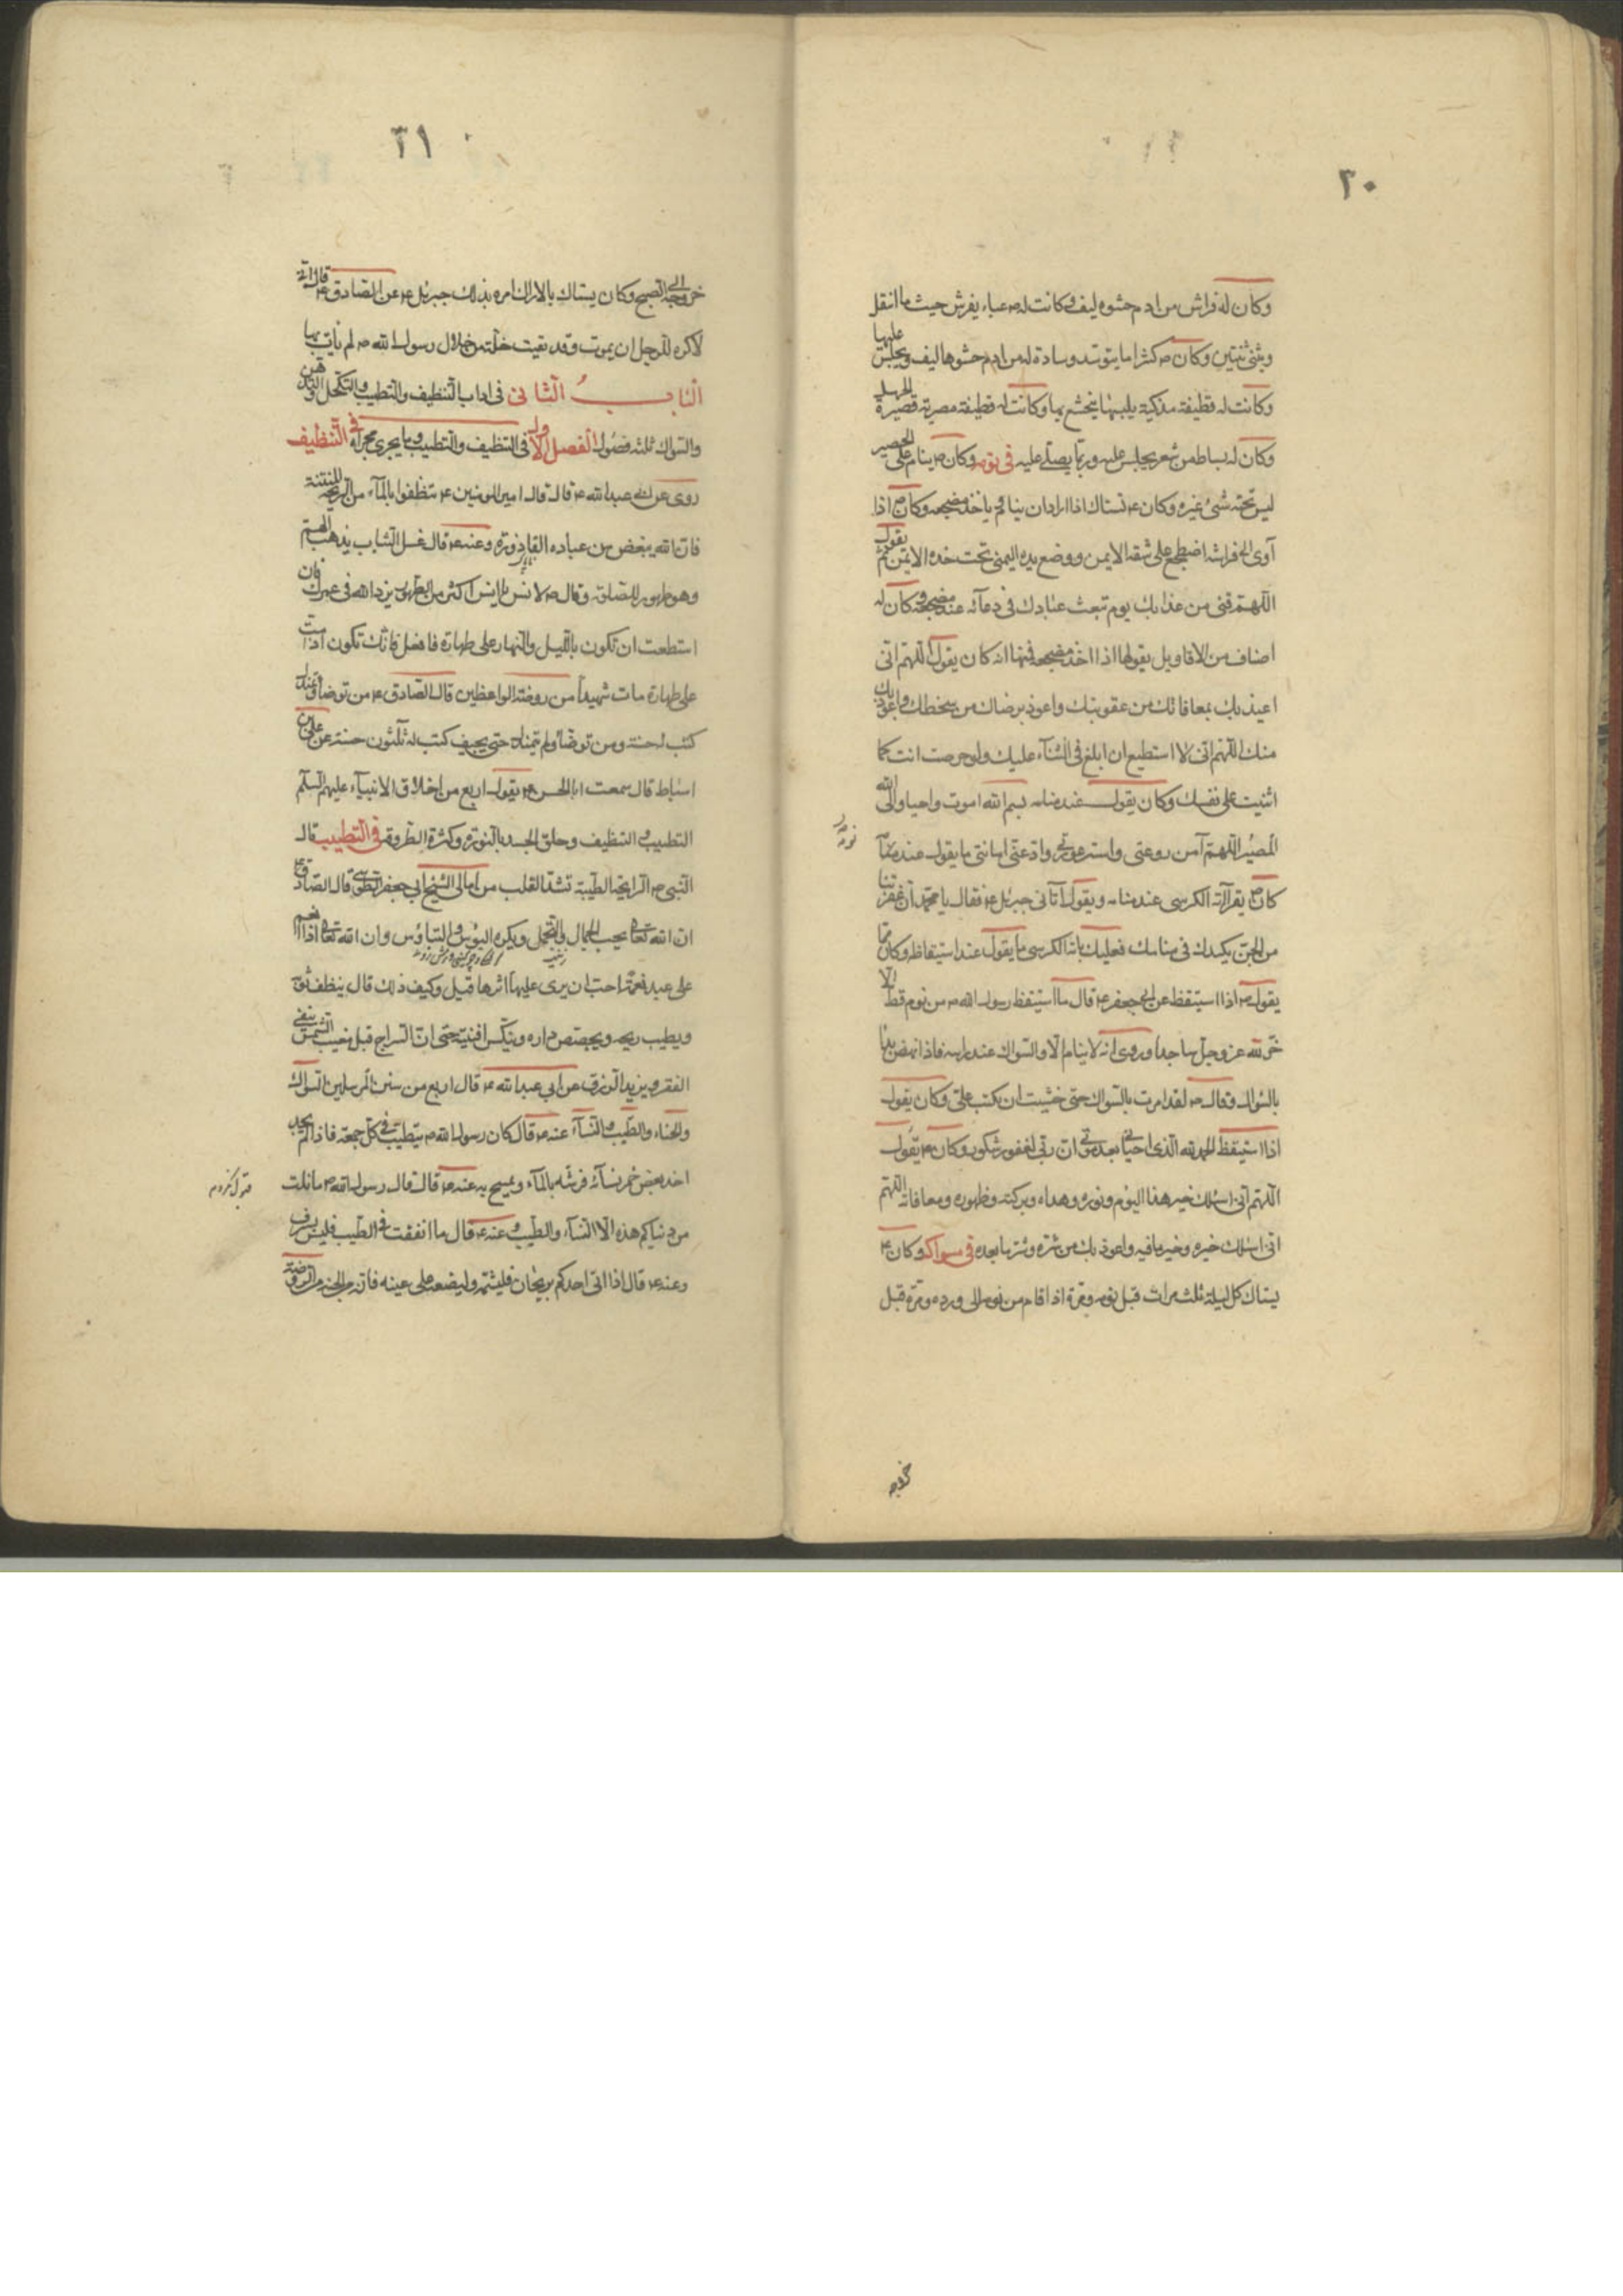 ٢٠
وكان له فراش من ادم حشوه ليف وكانت له ص عباء يفرش حيث ما انتقل
ويثنى ثنتين وكان ص كثيرا ما يتوسد وسادة له من ادم حشوها ليف ويجلس عليها
وكانت له قطيفة فدكية يلبسها يتخشع بها وكانت له قطيفة مصرية قصيرة الخمل
وكان له بساط من شعر يجلس عليه وربما يصلى عليه فى نومه وكان ص ينام على الحصير
ليس تحته شئ غيره وكان ص يستاك اذا اراد ان ينام ثم ياخذ مضجعه وكان ص اذا
آوى الى فراشه اضطجع على شقه الايمن ووضع يده اليمنى تحت خده الايمن ثم يقول
اللهم قنى من عذابك يوم تبعث عبادك فى دعآئه عند مضجعه وكان له
اصناف من الاقاويل يقولها اذا اخذ مضجعه فمنها انه كان يقول اللهم انى
اعيذ بك بمعافاتك من عقوبتك واعوذ برضاك من سخطك واعوذ بك
منك اللهم انى لا استطيع ان ابلغ فى الثنآء عليك ولو حرصت انت كما
اثنيت على نفسك وكان يقول عند منامه بسم الله اموت واحيا والى الله
المصير اللهم آمن روعتى واستر عورتى واد عنى امانتى ما يقول عند نومه
كان ص يقرا آية الكرسى عند منامه ويقول اتانى جبرئيل ع فقال يا محمد ان عفريتا
من الجن يكيدك فى منامك فعليك باية الكرسى ما يقول عند استيقاظه وكان مما
يقول ص اذا استيقظ عن ابى جعفر ع قال ما استيقظ رسول الله ص من نوم قط الا
خر لله عز وجل ساجدا وروى انه لا ينام الا والسواك عند راسه فاذا نهض بدا
بالسواك وقال ص لقد امرت بالسواك حتى خشيت ان يكتب على وكان يقول
اذا استيقظ الحمد لله الذى احيانى بعد موتى ان ربى لغفور شكور وكان ص يقول
اللهم انى اسئلك خير هذا اليوم ونوره وهداه وبركته وطهوره ومعافاته اللهم
انى اسئلك خيره وخير ما فيه واعوذ بك من شره وشر ما بعده فى سواكه وكان ص
يستاك كل ليلة ثلث مرات مرة قبل نومه ومرة اذا قام من نومه الى ورده ومرة قبل
خروجه
٢١
خروجه الى الصبح وكان يستاك بالاراك امره بذلك جبرئيل ع عن الصادق ع قال انى
لاكره للرجل ان يموت وقد بقيت خلة من خلال رسول الله ص لم يأت بها
الباب الثانى فى اداب التنظيف والتطيب والتكحل والتدهن
والسواك ثلثه فصول الفصل الاول فى التنظيف والتطيب وما يجرى مجراه فى التنظيف
روى عن ابى عبد الله ع قال قال امير المؤمنين ع تنظفوا بالمآء من الريح المنتنة
فان الله يبغض من عباده القاذورة وعنه ع قال غسل الثياب يذهب الهم
وهو طهور للصلوة وقال ص لانس يا انس اكثر من الطهور يزد الله فى عمرك فان
استطعت ان تكون بالليل والنهار على طهارة فافعل فانك تكون اذا مت
على طهارة مات شهيدا من روضة الواعظين قال الصادق ع من توضا وتمندل
كتب له حسنة ومن توضا ولم يتمندل حتى يجف كتب له ثلثون حسنة عن على بن
اسباط قال سمعت ابا الحسن ع يقول اربع من اخلاق الانبيآء عليهم السلم
التطييب والتنظيف وحلق الجسد بالنورة وكثرة الطروقة فى التطييب قال
النبى ص الرايحة الطيبة تشد القلب من امالى الشيخ ابى جعفر الطوسى قال الصادق ع
ان الله تعالى يحب الجمال والتجمل ويكره البؤس والتباؤس وان الله تعالى اذا انعم
على عبد نعمة احب ان يرى عليها اثرها قيل وكيف ذلك قال ينظف ثوبه
ويطيب ريحه ويجصص داره ويكنس افنيته حتى ان السراج قبل مغيب الشمس ينفى
الفقر ويزيد الرزق عن ابى عبد الله ع قال اربع من سنن المرسلين السواك
والحناء والطيب والنسآء عنه ع قال كان رسول الله ص يتطيب فى كل جمعة فاذا لم يجد
اخذ بعض خمر نسآئه فرشه بالمآء ويمسح به عنه ع قال قال رسول الله ص ما نلت
من دنياكم هذه الا النسآء والطيب وعنه ع قال ما انفقت فى الطيب فليس بسرف
وعنه ع قال اذا اتى احدكم بريحان فليشمه وليضعه على عينيه فانه من الجنة من الروضة